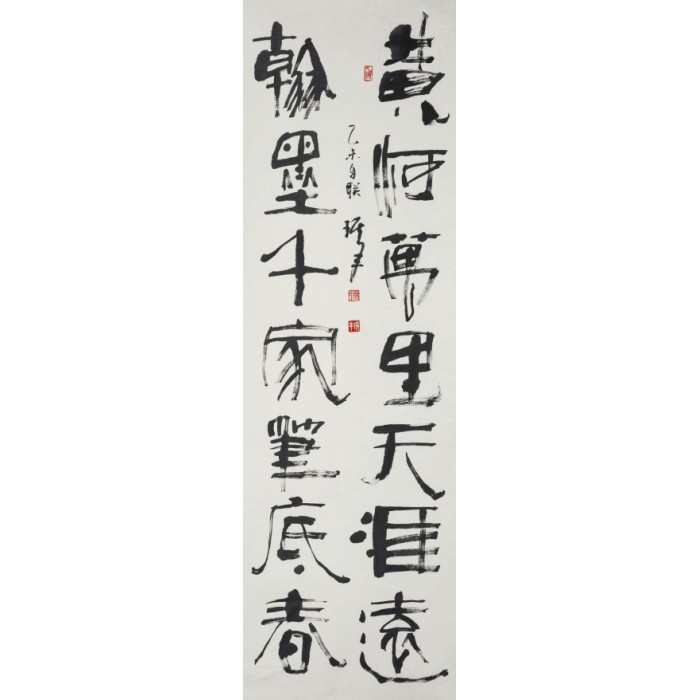 黄河萬里天涯遠
翰墨千家筆底春
乙未自联